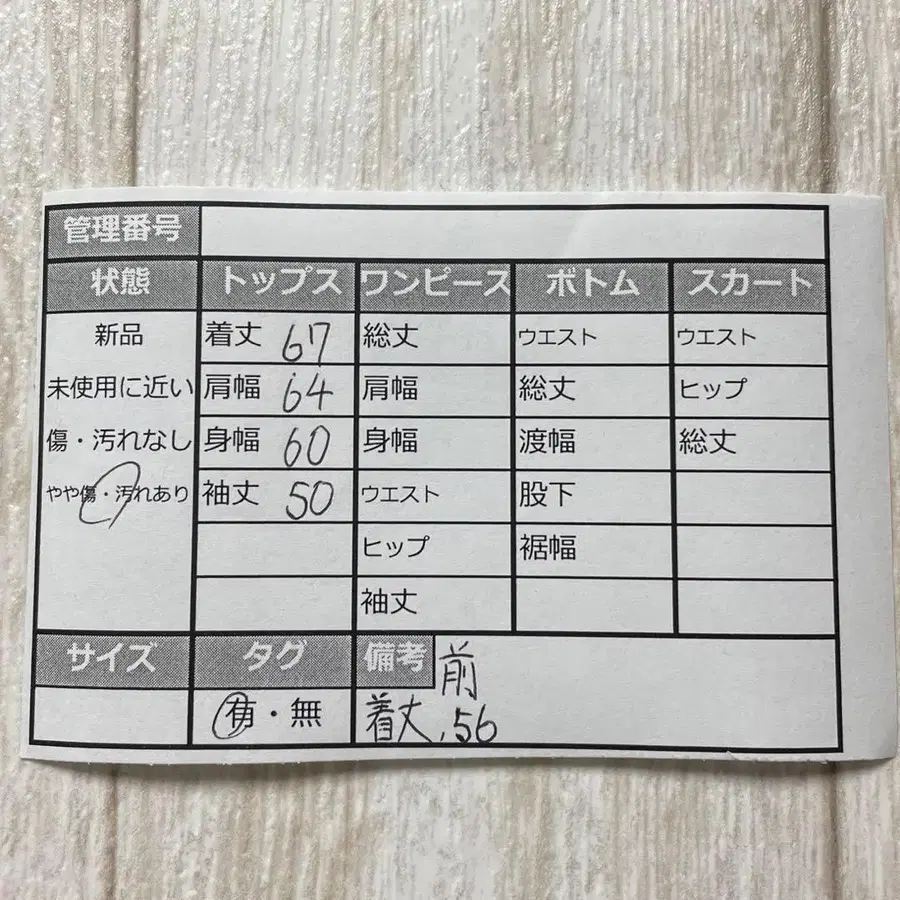 管理番号
状態 トップス ワンピース ボトム スカート
新品 着丈 67 総丈 ウエスト ウエスト
未使用に近い 肩幅 64 肩幅 総丈 ヒップ
傷・汚れなし 身幅 60 身幅 渡幅 総丈
やや傷・汚れあり 袖丈 50 ウエスト 股下
ヒップ 裾幅
袖丈
サイズ タグ 備考 前
有・無 着丈.56